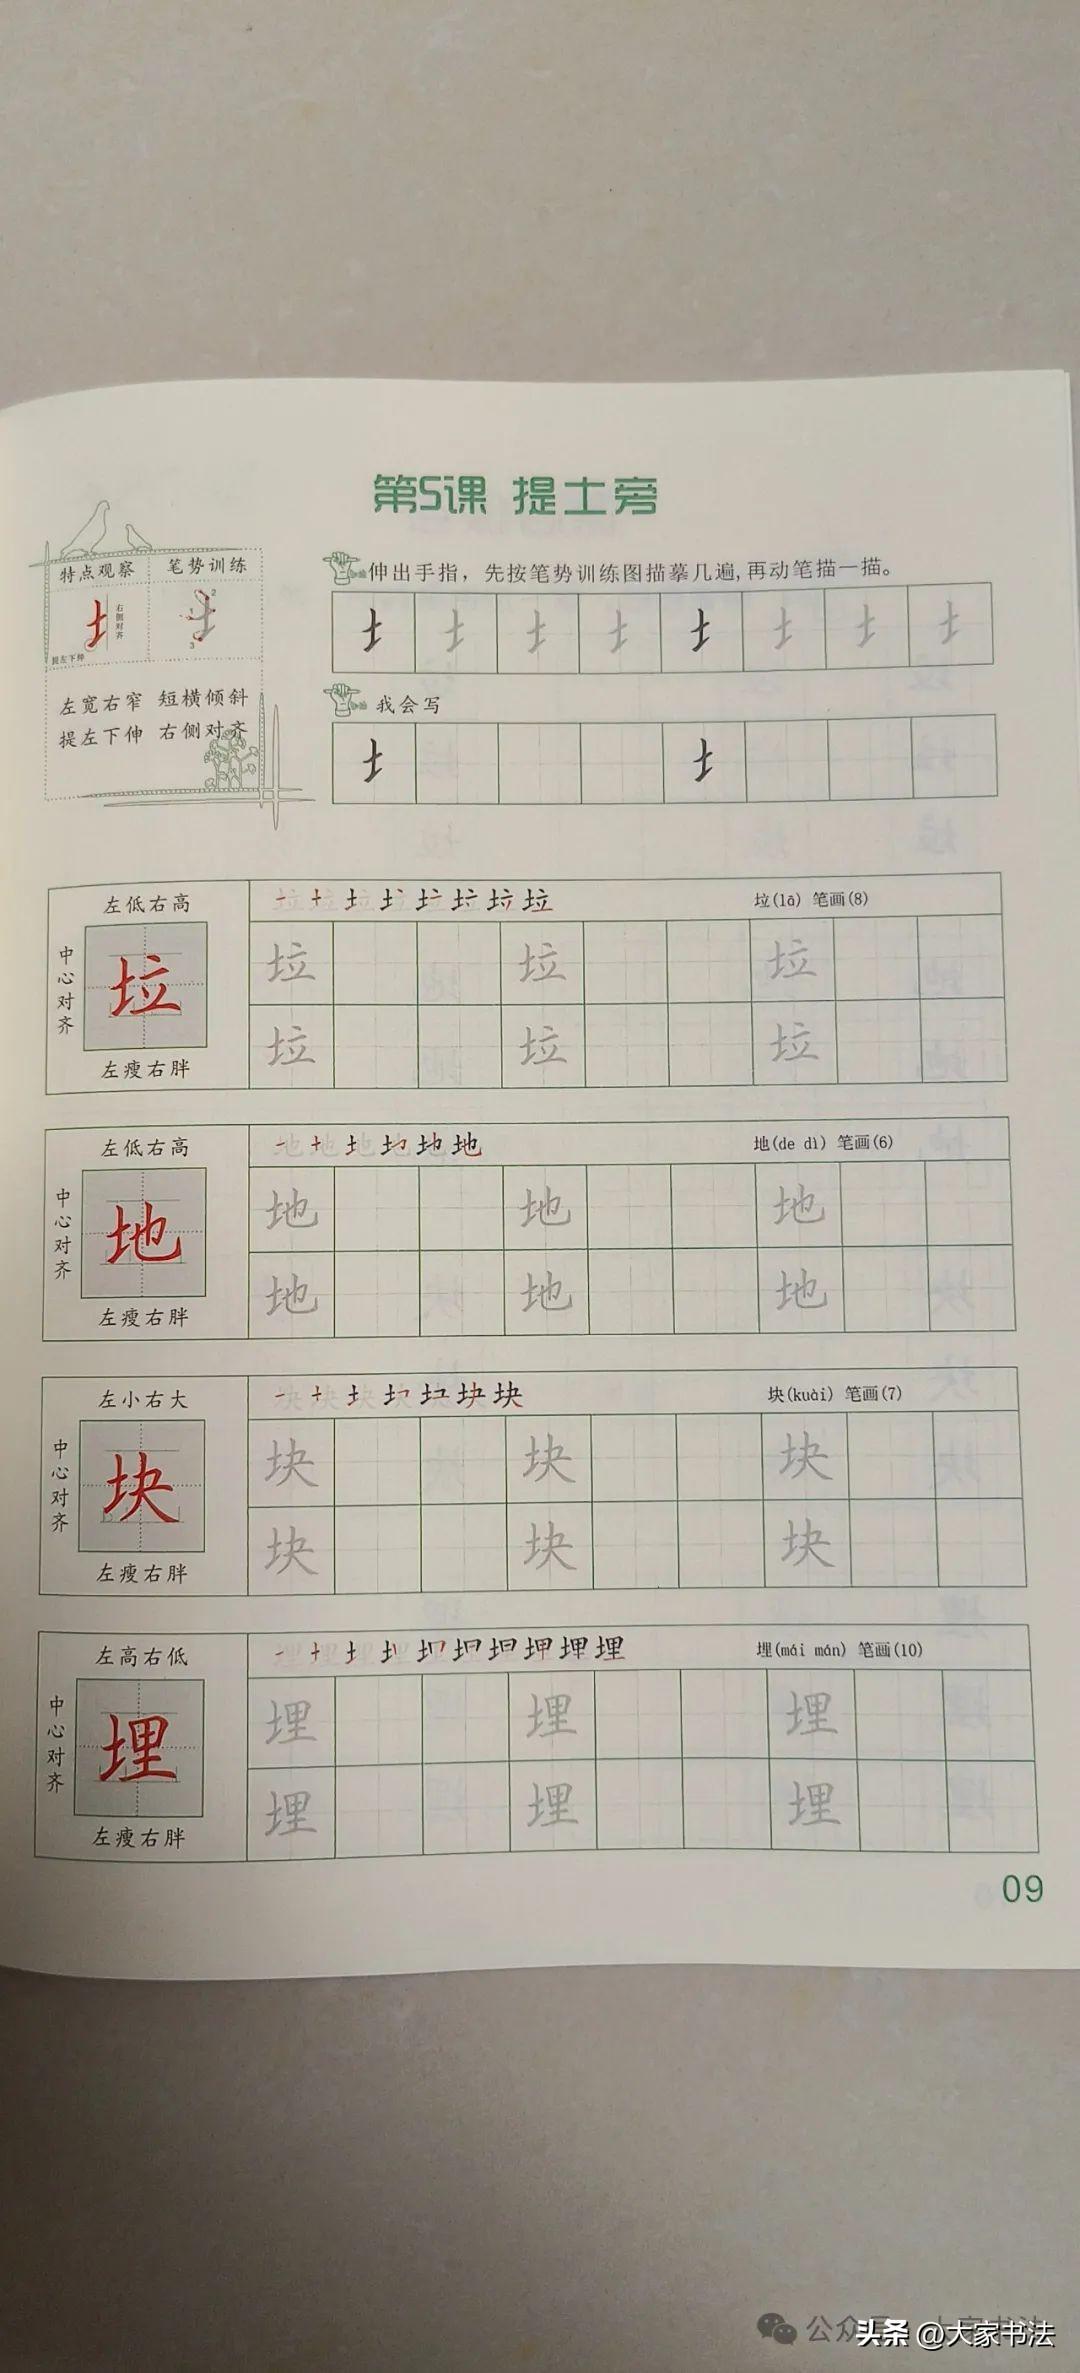 第5课 提土旁
特点观察 笔势训练
右侧对齐
提左下伸
1
2
3
左宽右窄 短横倾斜
提左下伸 右侧对齐
伸出手指，先按笔势训练图描摹几遍，再动笔描一描。
我会写
左低右高
中心对齐
垃
左瘦右胖
垃(lā) 笔画(8)
垃 垃 垃
垃 垃 垃
左低右高
中心对齐
地
左瘦右胖
地(de dì) 笔画(6)
地 地 地
地 地 地
左小右大
中心对齐
块
左瘦右胖
块(kuài) 笔画(7)
块 块 块
块 块 块
左高右低
中心对齐
埋
左瘦右胖
埋(mái mán) 笔画(10)
埋 埋 埋
埋 埋 埋
09
公众号
头条 @大家书法